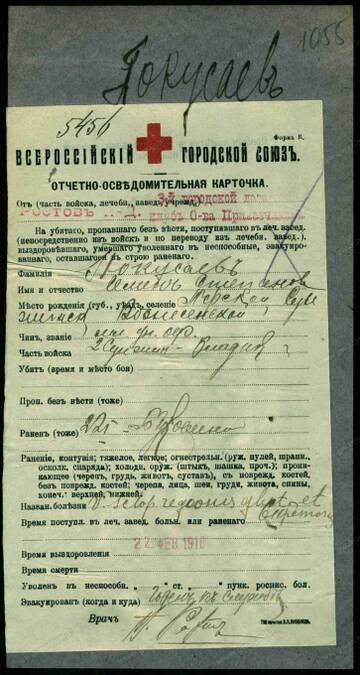 1055
Покусаевъ
5456
Форма К.
ВСЕРОССІЙСКІЙ ГОРОДСКОЙ СОЮЗЪ.
ОТЧЕТНО-ОСВѢДОМИТЕЛЬНАЯ КАРТОЧКА.
Отъ (часть войска, лечебн., завед., учрежд.) 3-й городской лаза
РОСТОВЪ Н-Д.
На убитаго, пропавшаго безъ вѣсти, поступившаго въ леч. завед.
(непосредственно изъ войскъ и по переводу изъ лечебн. завед.),
выздоровѣвшаго, умершаго уволеннаго въ неспособные, эвакуиро-
ваннаго, оставшагося въ строю раненаго.
Фамилія Покусаевъ
Имя и отчество Семенъ Степанов
Мѣсто рожденія (губ., уѣздъ, селеніе Терской Сун
женск Вознесенской
Чинъ, званіе
Часть войска 2 Сунженск-Владик
Убитъ (время и мѣсто боя)
Проп. безъ вѣсти (тоже)
Раненъ (тоже)
Раненіе, контузія; тяжелое, легкое; огнестрѣльн. (руж. пулей, шрапн.,
осколк. снаряда); холодн. оруж. (штыкъ, шашка, проч.); прони-
кающее (черепъ, грудь, животъ, суставъ), съ поврежд. костей,
безъ поврежд. костей; череса, лица, шеи, груди, живота, спины,
конеч. верхней, нижней.
Назван. болѣзни
Время поступл. въ леч. завед. больн. или раненаго
22 ФЕВ 1916
Время выздоровленія
Время смерти
Уволенъ въ неспособн. " ст. " пунк. роспис. бол.
Эвакуированъ (когда и куда) Годенъ къ службѣ
Врачъ